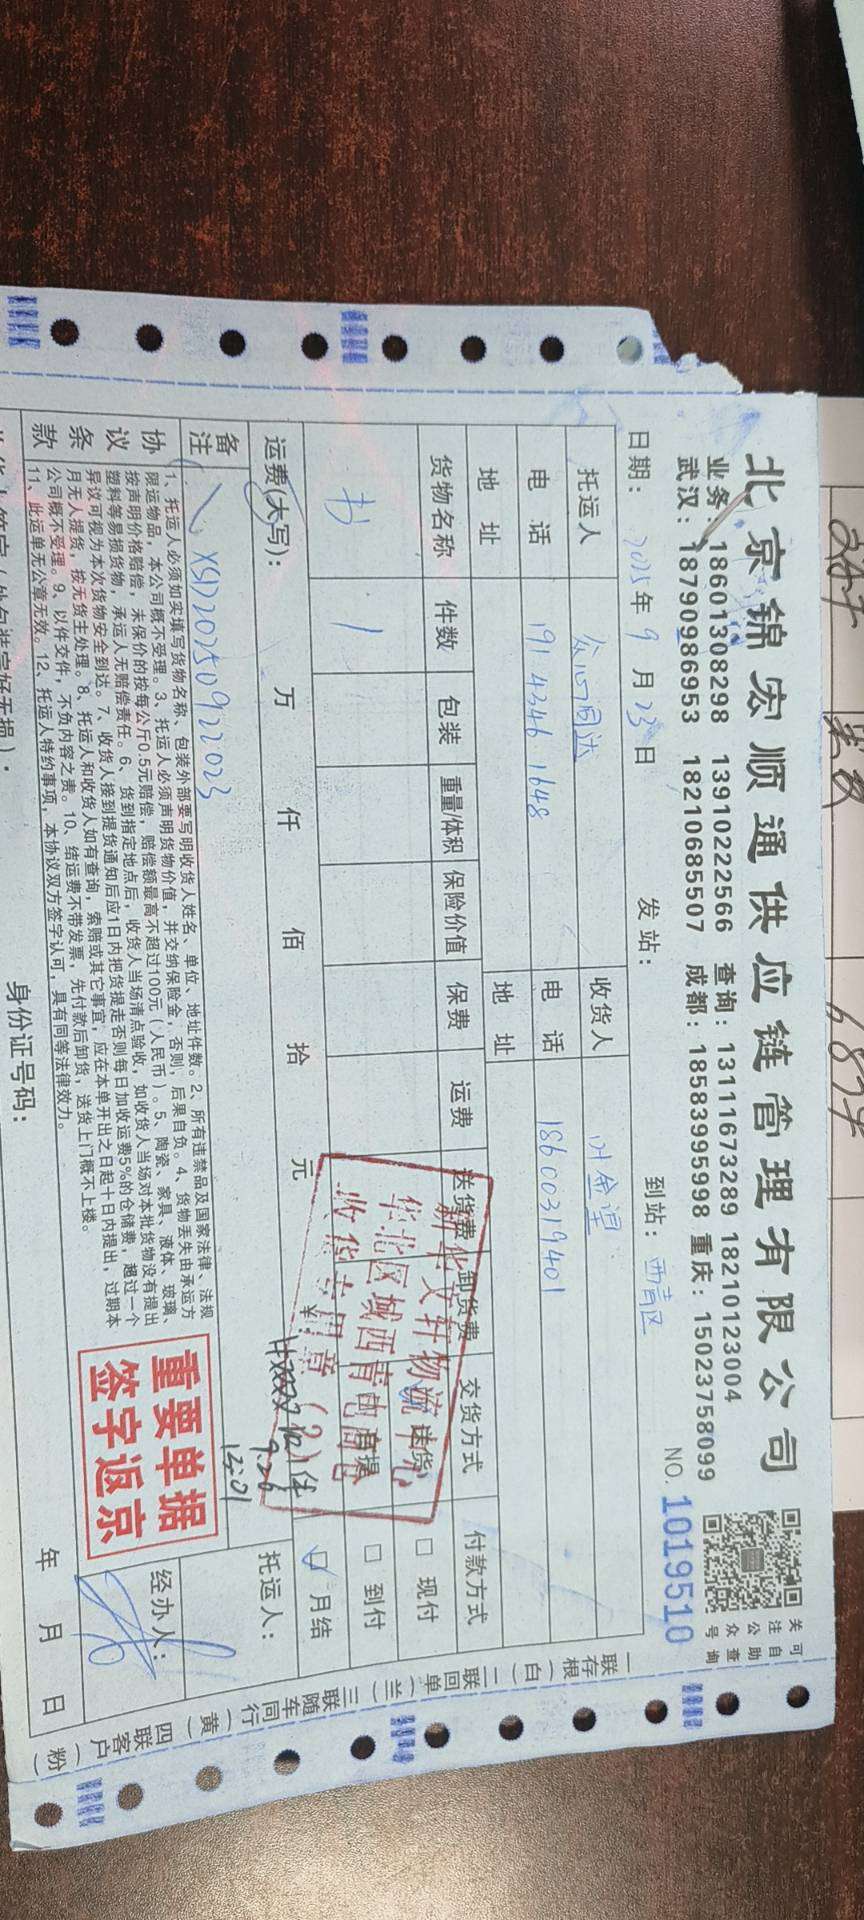 北京锦宏顺通供应链管理有限公司
关注公众号
可自助查询
业务：18601308298 13910222566 查询：13111673289 18210123004
武汉：18790986953 18210685507 成都：18583995998 重庆：15023758099
NO. 1019510
日期：2025年9月23日 发站： 到站：西青区
托运人 收货人 叶金望
电话 19143461648 电话 18600319401
地址 地址
货物名称 件数 包装 重量/体积 保险价值 保费 运费 送货费 卸货费 交货方式 付款方式
书 1 送货 □ 现付
自提 □ 到付
☑ 月结
运费(大写)： 万 仟 佰 拾 元 ¥
托运人：
备注 XSD20250922023
新华文轩物流中心
华北区域西青电商仓
收货专用章(2)
9.26
协议条款
1、托运人必须如实填写货物名称、包装外部要写明收货人姓名、单位、地址件数。2、所有违禁品及国家法律、法规
限运物品，本公司概不受理。3、托运人必须声明货物价值，并交纳保险金，否则，后果自负。4、货物丢失由承运方
按声明价格赔偿，未保价的按每公斤0.5元赔偿，赔偿额最高不超过100元(人民币)。5、陶瓷、家具、液体、玻璃、
塑料等易损货物，承运人无赔偿责任。6、货到指定地点后，收货人当场清点验收，如收货人当场对本批货物没有提出
异议可视为本次货物安全到达。7、收货人接到提货通知后应1日内把货提走否则每日加收运费5%的仓储费，超过一个
月无人提货，按无货主处理。8、托运人和收货人如有查询，索赔或其它事宜，应在本单开出之日起十日内提出，过期本
公司概不受理。9、以件交件，不负内容之责。10、结运费不带发票，先付款后卸货，送货上门概不上楼。
11、此运单无公章无效。12、托运人特约事项，本协议双方签字认可，具有同等法律效力。
重要单据
签字返京
经办人：
身份证号码： 年 月 日
一联存根(白) 二联回单(兰) 三联随车同行(黄) 四联客户(粉)